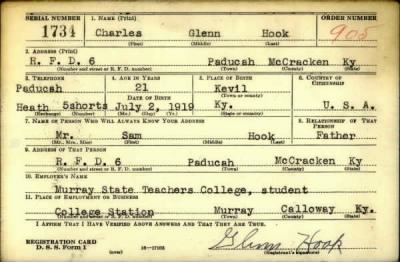 SERIAL NUMBER 1. NAME (Print) ORDER NUMBER
1734 Charles Glenn Hook 905
(First) (Middle) (Last)
2. ADDRESS (Print)
R. F. D. 6 Paducah McCracken Ky
(Number and street or R. F. D. number) (Town) (County) (State)
3. TELEPHONE 4. AGE IN YEARS 5. PLACE OF BIRTH 6. COUNTRY OF CITIZENSHIP
Paducah 21 Kevil
DATE OF BIRTH (Town or county)
Heath 5shorts July 2, 1919 Ky. U. S. A.
(Exchange) (Number) (Mo.) (Day) (Yr.) (State or country)
7. NAME OF PERSON WHO WILL ALWAYS KNOW YOUR ADDRESS 8. RELATIONSHIP OF THAT PERSON
Mr. Sam Hook Father
(Mr., Mrs., Miss) (First) (Middle) (Last)
9. ADDRESS OF THAT PERSON
R. F. D. 6 Paducah McCracken Ky
(Number and street or R. F. D. number) (Town) (County) (State)
10. EMPLOYER'S NAME
Murray State Teachers College, student
11. PLACE OF EMPLOYMENT OR BUSINESS
College Station Murray Calloway Ky.
(Number and street or R. F. D. number) (Town) (County) (State)
I AFFIRM THAT I HAVE VERIFIED ABOVE ANSWERS AND THAT THEY ARE TRUE.
REGISTRATION CARD
D. S. S. Form 1 (over) Glenn Hook
(Registrant's signature)